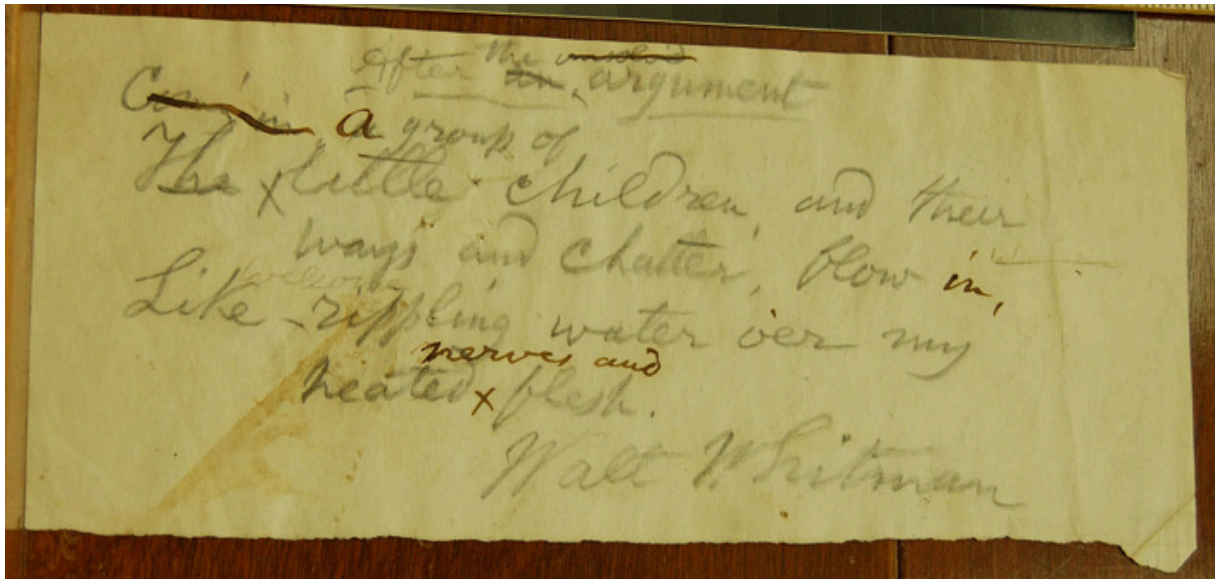 After the unsolv'd an argument
a group of
The little children, and their
ways and chatter, flow in,
Like welcome rippling water o'er my
nerves and
heated x flesh.
Walt Whitman